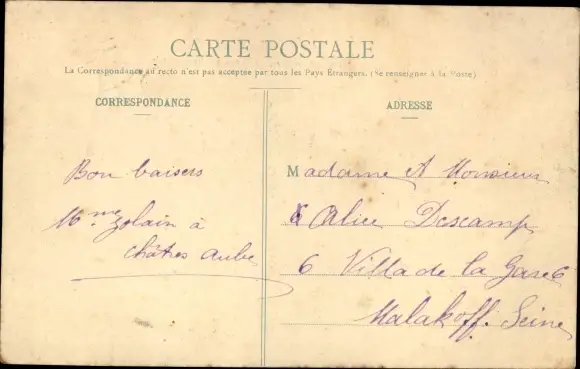 CARTE POSTALE
La Correspondance au recto n'est pas acceptée par tous les Pays Étrangers. (Se renseigner à la Poste)
CORRESPONDANCE
Bon baisers
Mme Jolain à
Châtres Aube
ADRESSE
Madame et Monsieur
Alice Descamp
6 Villa de la Gare 6
Malakoff. Seine